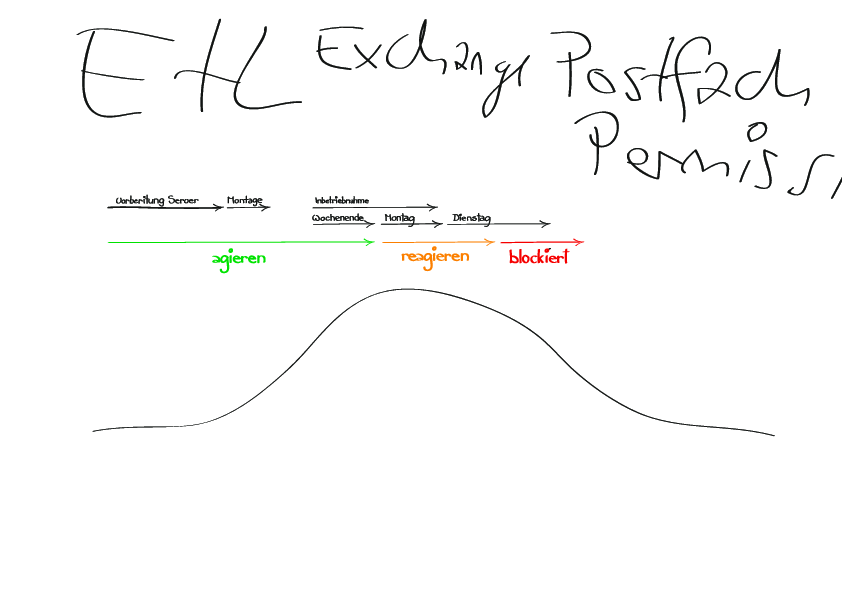 EHL Exchange Postfach
Permissi
Vorbereitung Server Montage Inbetriebnahme
Wochenende Montag Dienstag
agieren reagieren blockiert